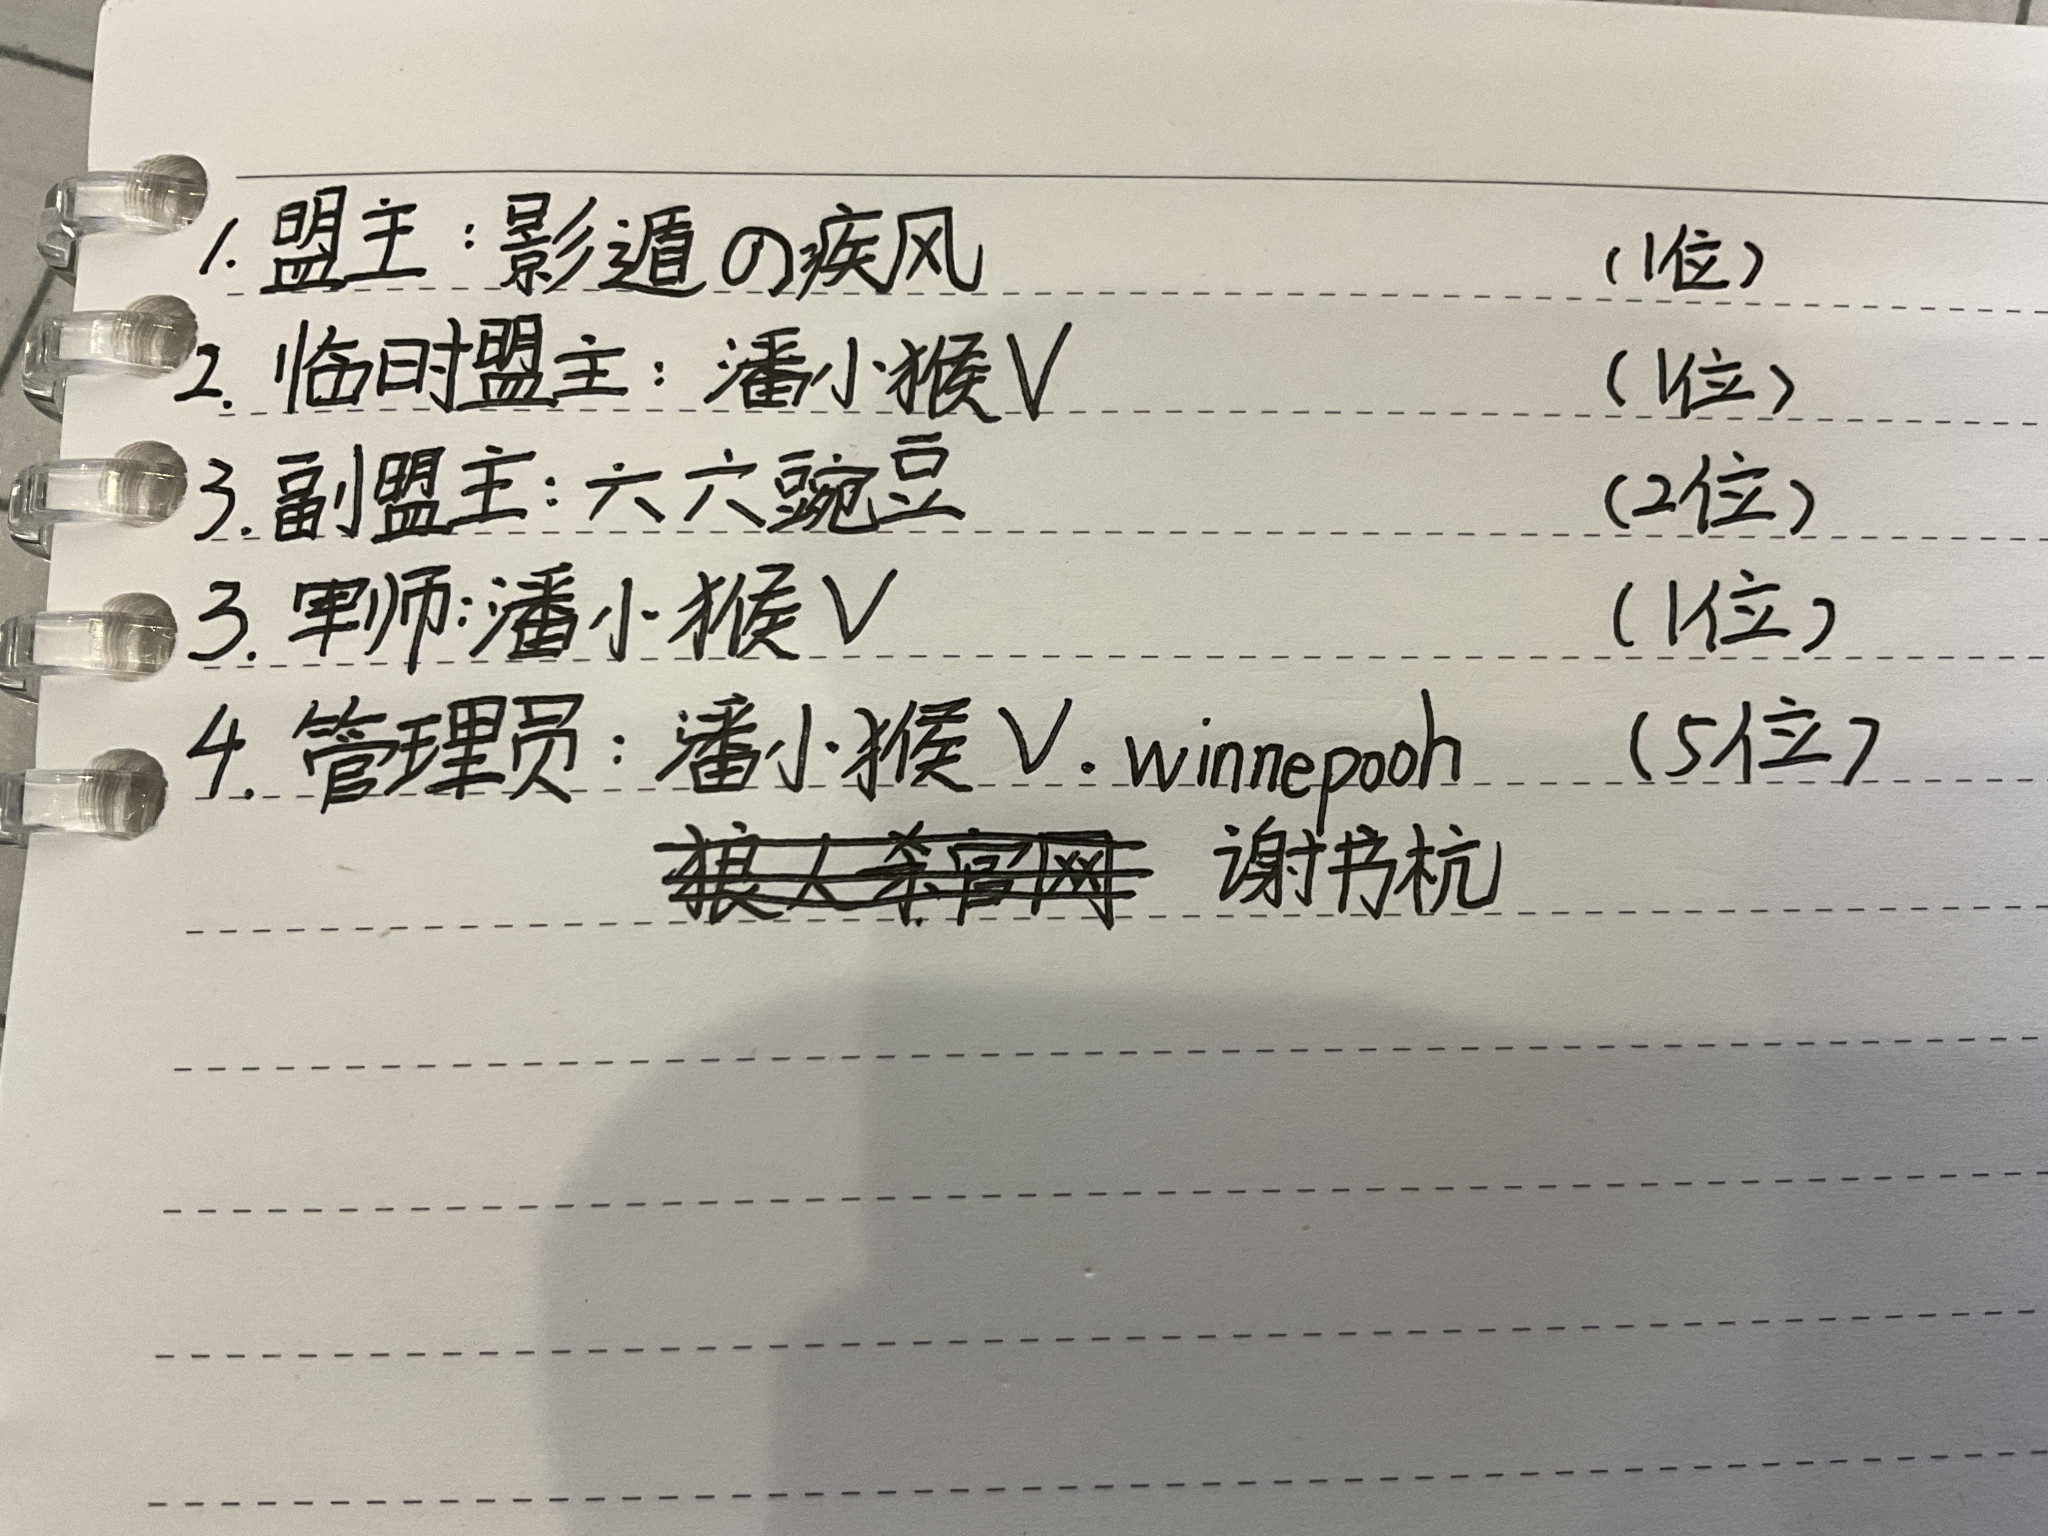 1. 盟主：影遁の疾风 （1位）
2. 临时盟主：潘小猴V （1位）
3. 副盟主：六六豌豆 （2位）
3. 军师：潘小猴V （1位）
4. 管理员：潘小猴V. winnepooh （5位）
狼人杀官网 谢书杭